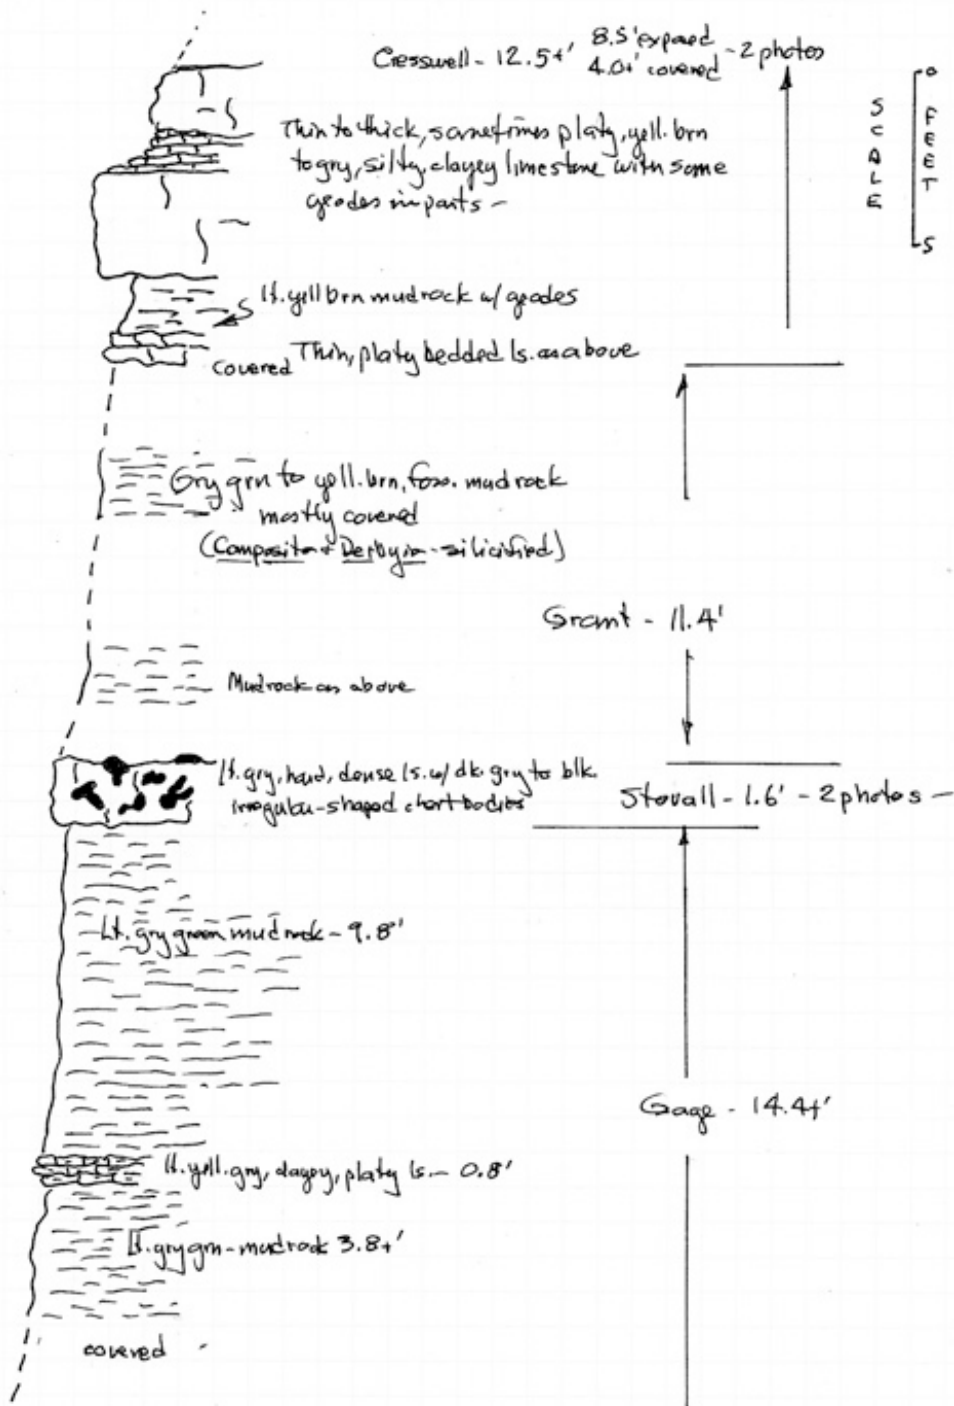 Cresswell - 12.5+' 8.5' exposed - 2 photos
4.0+' covered
SCALE
FEET
0
5
Thin to thick, sometimes platy, yell. brn
to gry, silty, clayey limestone with some
geodes in parts -
lt. yell brn mudrock w/ geodes
Thin, platy bedded ls. as above
Covered
Gry grn to yell. brn, foss. mudrock
mostly covered
(Composita + Derbyia - silicified)
Grant - 11.4'
Mudrock as above
lt. gry, hard, dense ls. w/ dk. gry to blk.
irregular-shaped chert bodies
Stovall - 1.6' - 2 photos -
Lt. gry green mudrock - 9.8'
Gage - 14.4+'
lt. yell. gry, clayey, platy ls. - 0.8'
Lt. gry grn - mudrock 3.8+'
covered